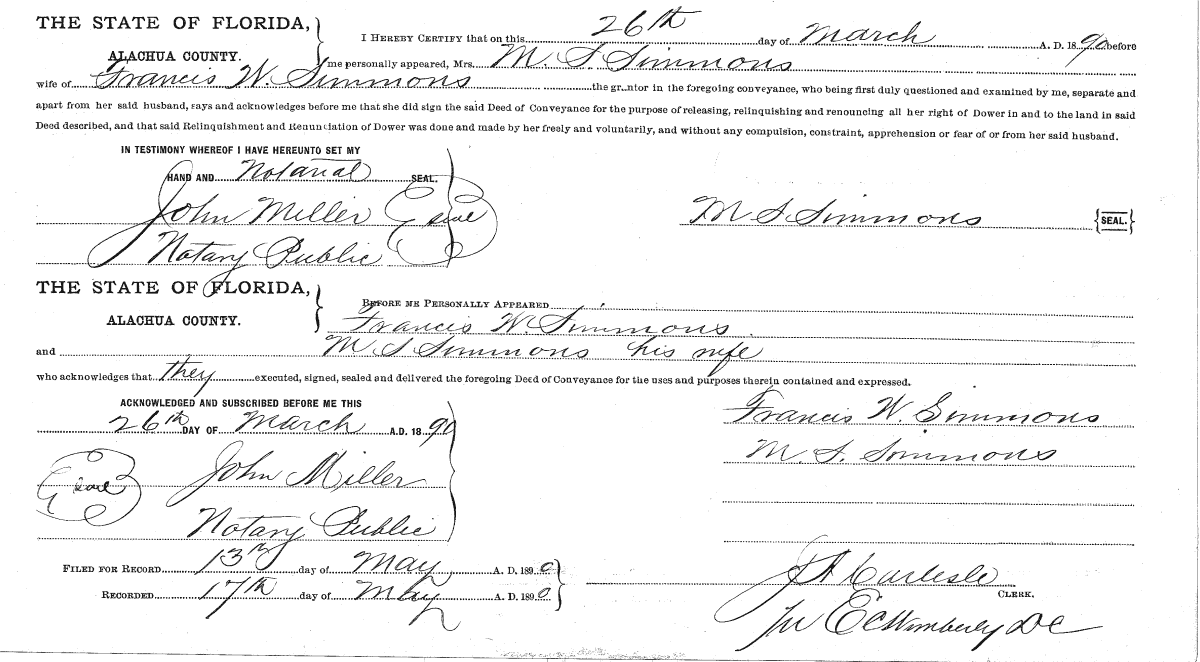 THE STATE OF FLORIDA,
ALACHUA COUNTY.
I HEREBY CERTIFY that on this 26th day of March A. D. 1890 before
me personally appeared, Mrs. M. S Simmons
wife of Francis W. Simmons the gr..ntor in the foregoing conveyance, who being first duly questioned and examined by me, separate and
apart from her said husband, says and acknowledges before me that she did sign the said Deed of Conveyance for the purpose of releasing, relinquishing and renouncing all her right of Dower in and to the land in said
Deed described, and that said Relinquishment and Renunciation of Dower was done and made by her freely and voluntarily, and without any compulsion, constraint, apprehension or fear of or from her said husband.
IN TESTIMONY WHEREOF I HAVE HEREUNTO SET MY
HAND AND Notarial SEAL.
John Miller seal
M S Simmons {SEAL.}
Notary Public
THE STATE OF FLORIDA,
ALACHUA COUNTY.
BEFORE ME PERSONALLY APPEARED
Francis W. Simmons
and M S Simmons his wife
who acknowledges that they executed, signed, sealed and delivered the foregoing Deed of Conveyance for the uses and purposes therein contained and expressed.
ACKNOWLEDGED AND SUBSCRIBED BEFORE ME THIS
26th DAY OF March A.D. 1890
Francis W. Simmons
M. S. Simmons
seal John Miller
Notary Public
FILED FOR RECORD 13th day of May A. D. 1890
RECORDED 17th day of May A. D. 1890
Carlisle
CLERK.
E C Wimberly DC